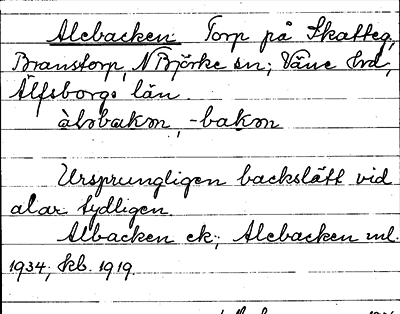 Alebacken Torp på Skatteg,
Branstorp, N Björke sn; Väne hd,
Älfsborgs län.
àləbakən, -bakən
Ursprungligen backslätt vid
alar tydligen.
Albacken ek; Alebacken ml.
1934; kb. 1919.